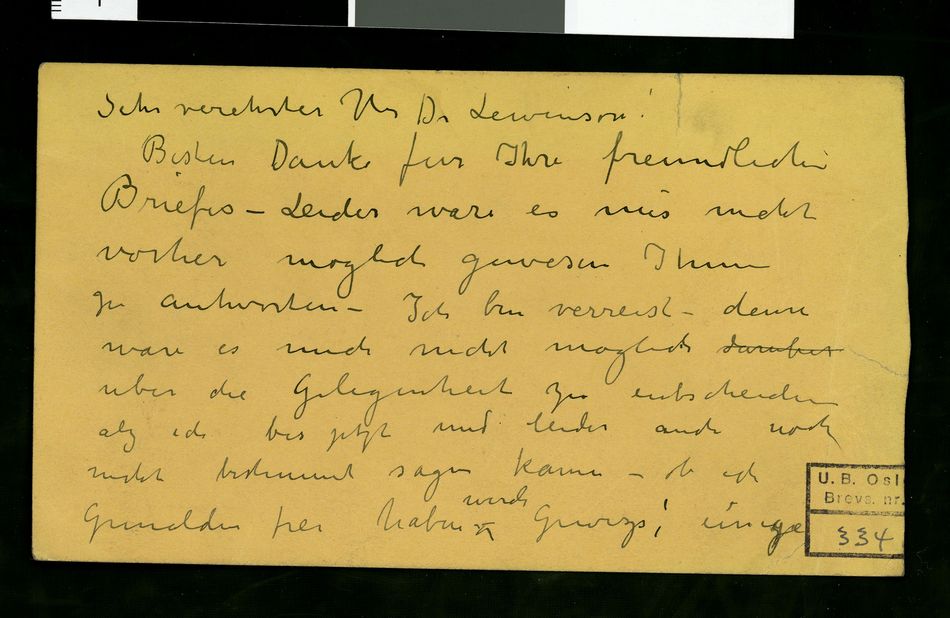 Sehr verehrter Herr Dr Lewinson!
Besten Danke fur Ihre freundlichen
Briefes – Leider ware es mir nicht
vorher moglich gewesen Ihnen
zu antworten – Ich bin verreist – denn
ware es nicht moglich daruber
uber die Gelegenheit zu entscheiden
als ich bis jetzt und leider auch noch
nicht bestimmt sagen kann – ob ich
Gemälden frei haben werde
U.B. Osl
Brevs. nr.
334